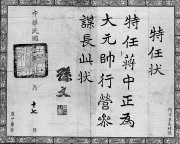 特任狀
特任蔣中正為
大元帥行營參
謀長此狀
孫文
中華民國
月十七日